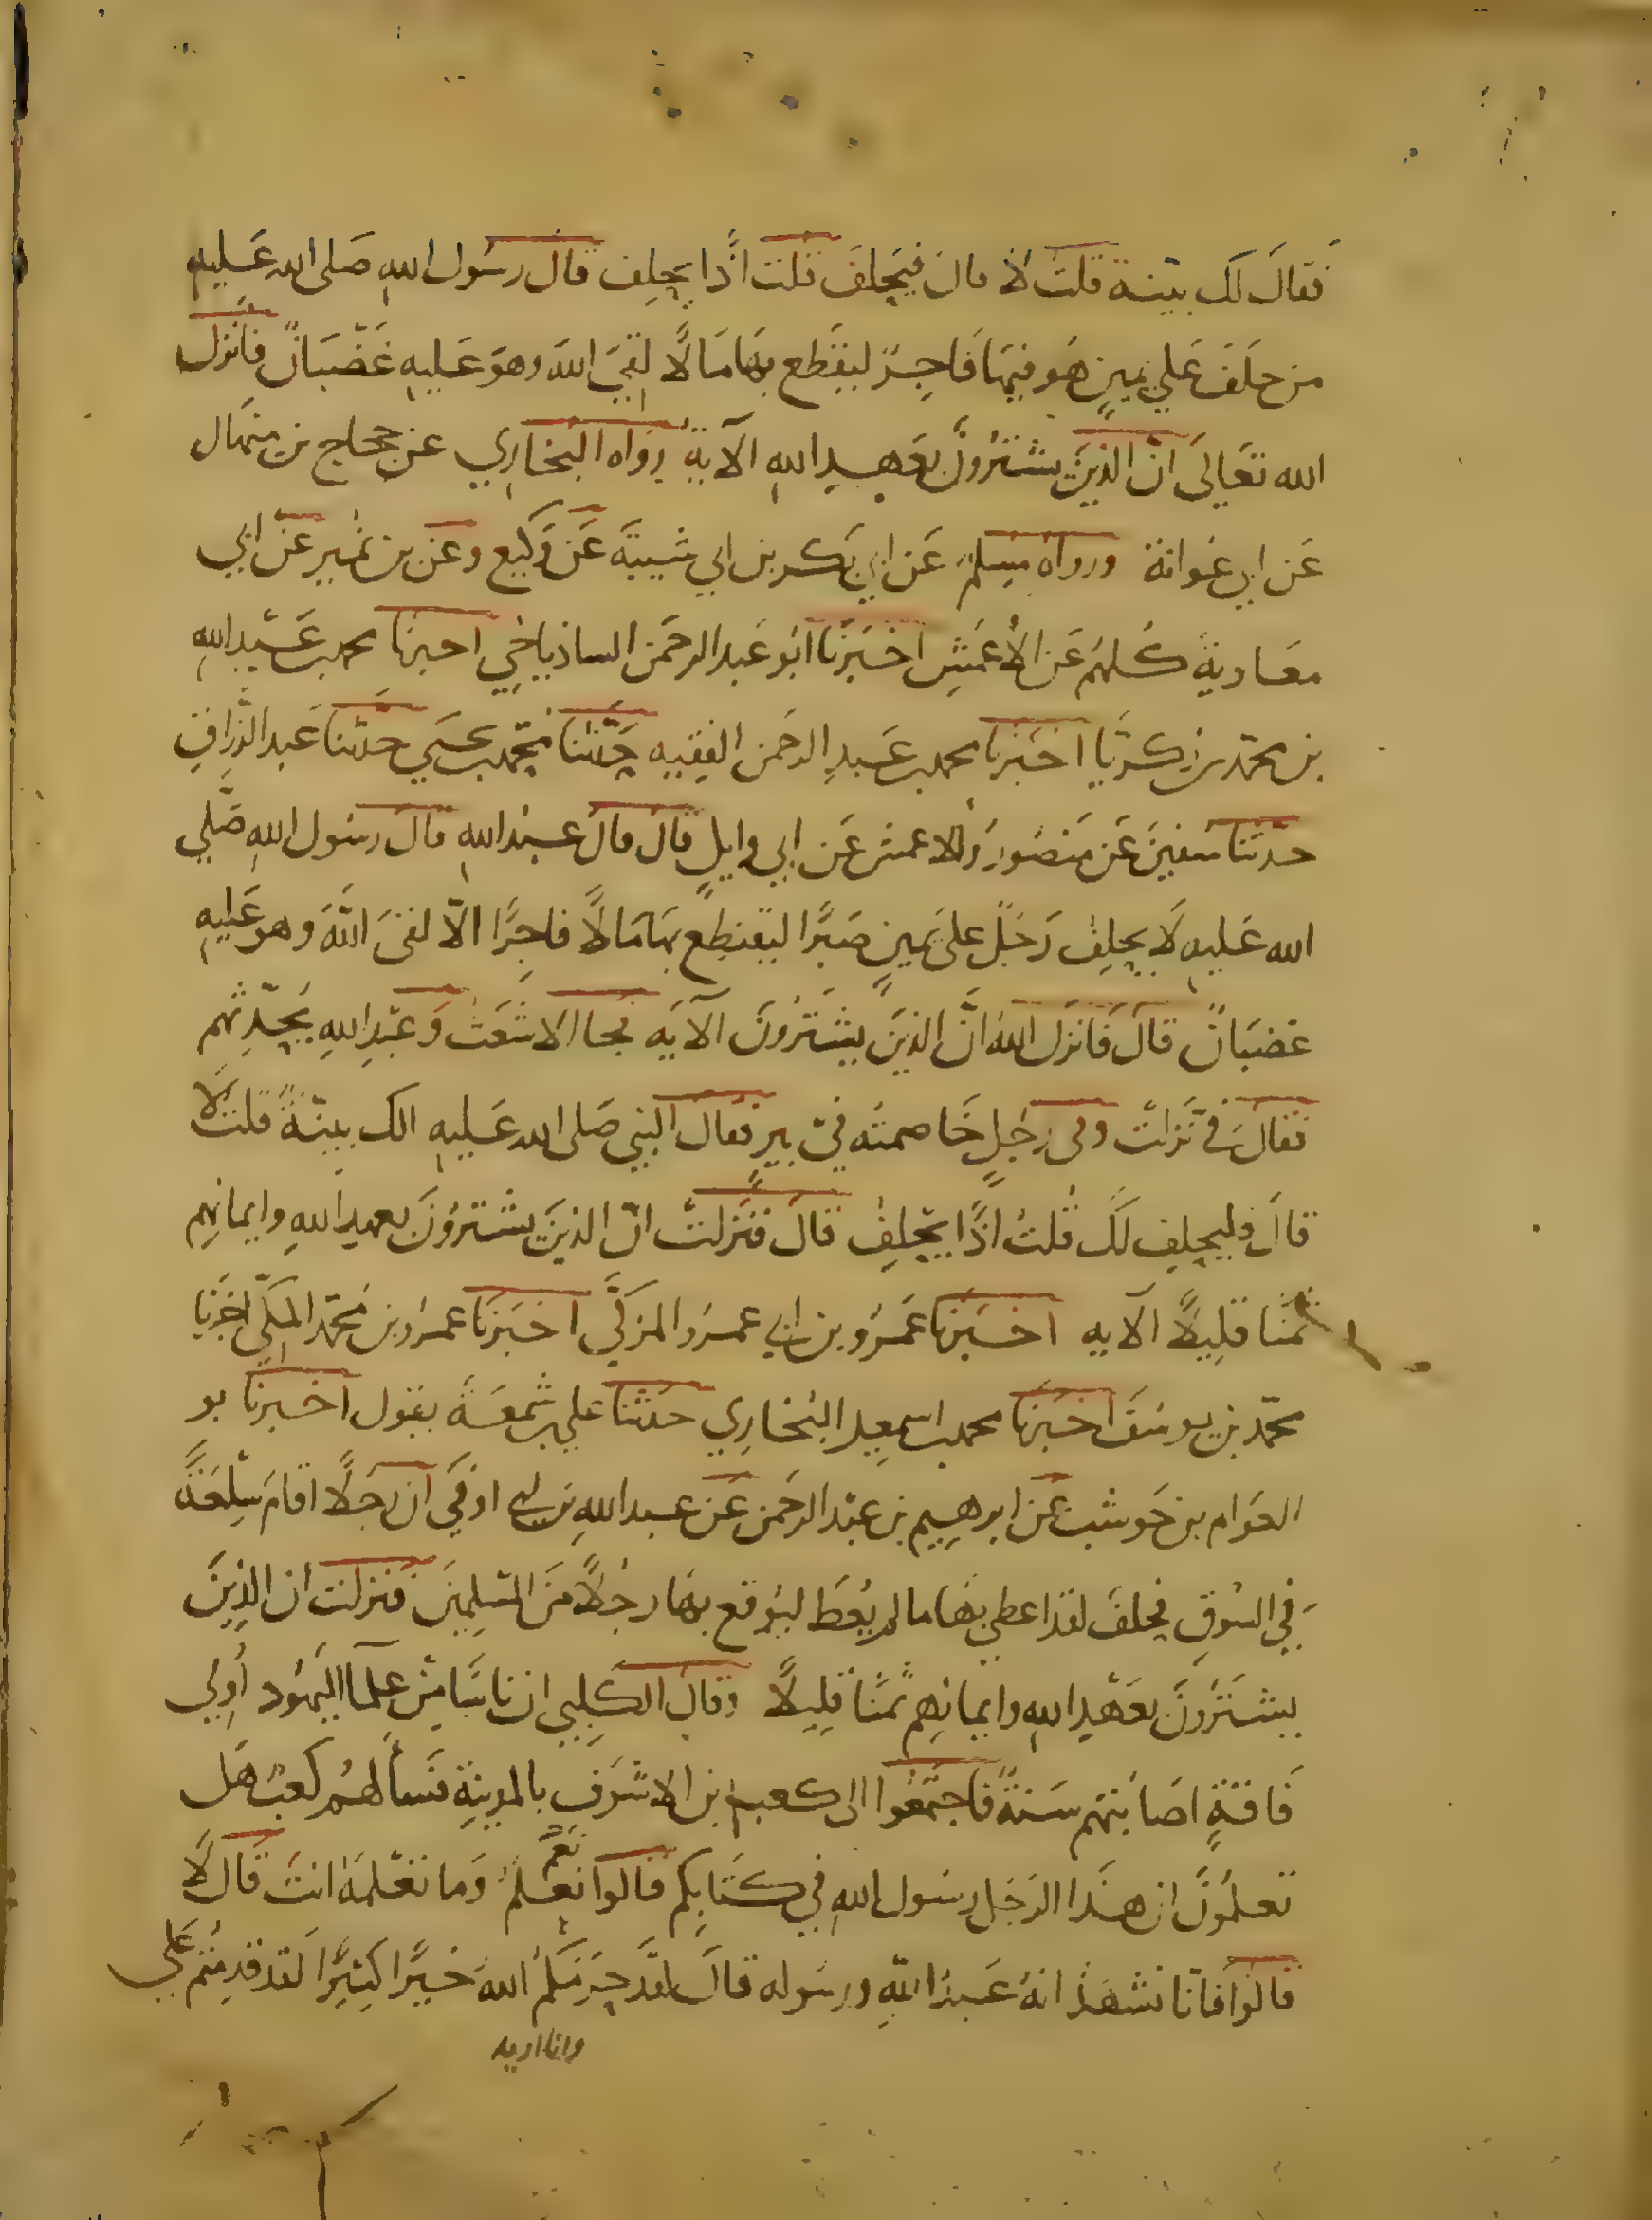 فقال لك بينة قلت لا قال فيحلف قلت اذا يحلف قال رسول الله صلى الله عليه
من حلف على يمين هو فيها فاجر ليقطع بها مالا لقي الله وهو عليه غضبان فانزل
الله تعالى ان الذين يشترون بعهد الله الآية رواه البخاري عن حجاج بن منهال
عن ابي عوانة ورواه مسلم عن ابي بكر بن ابي شيبة عن وكيع وعن بن نمير عن ابي
معاوية كلهم عن الأعمش اخبرنا ابو عبد الرحمن الساذياخي اخبرنا محمد بن عبيد الله
بن محمد بن زكريا اخبرنا محمد بن عبد الرحمن الفقيه حدثنا محمد بن يحيى حدثنا عبد الرزاق
حدثنا سفين عن منصور والاعمش عن ابي وايل قال قال عبد الله قال رسول الله صلى
الله عليه لا يحلف رجل على يمين صبرا ليقتطع بها مالا فاجرا الا لقي الله وهو عليه
غضبان قال فانزل الله ان الذين يشترون الآيه فجا الاشعث وعبد الله يحدثهم
فقال في نزلت وفي رجل خاصمته في بير فقال النبي صلى الله عليه الك بينة قلت لا
قال فليحلف لك قلت اذا يحلف قال فنزلت ان الذين يشترون بعهد الله وايمانهم
ثمنا قليلا الآيه اخبرنا عمرو بن ابي عمرو المزكي اخبرنا عمرو بن محمد المكي اخبرنا
محمد بن يوسف اخبرنا محمد بن اسمعيل البخاري حدثنا علي سمعه يقول اخبرنا بو
العوام بن حوشب عن ابرهيم بن عبد الرحمن عن عبد الله بن ابي اوفى ان رجلا اقام سلعة
في السوق فحلف لقد اعطي بها ما لم يعط ليوقع بها رجلا من المسلمين فنزلت ان الذين
يشترون بعهد الله وايمانهم ثمنا قليلا وقال الكلبي ان ناسا من علما اليهود اولي
فاقة اصابتهم سنة فاجتمعوا الى كعب بن الاشرف بالمدينة فسألهم كعب هل
تعلمون ان هذا الرجل رسول الله في كتابكم قالوا نعم وما تعلمه انت قال لا
قالوا فانا نشهد انه عبد الله ورسوله قال لقد حرمكم الله خيرا كثيرا لقد قدمتم علي
وانا اريد